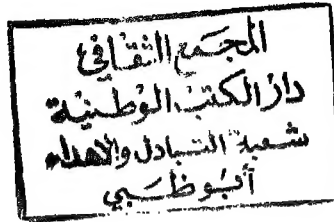 المجمع الثقافي
دار الكتب الوطنية
شعبة التبادل والاهداء
أبو ظبي